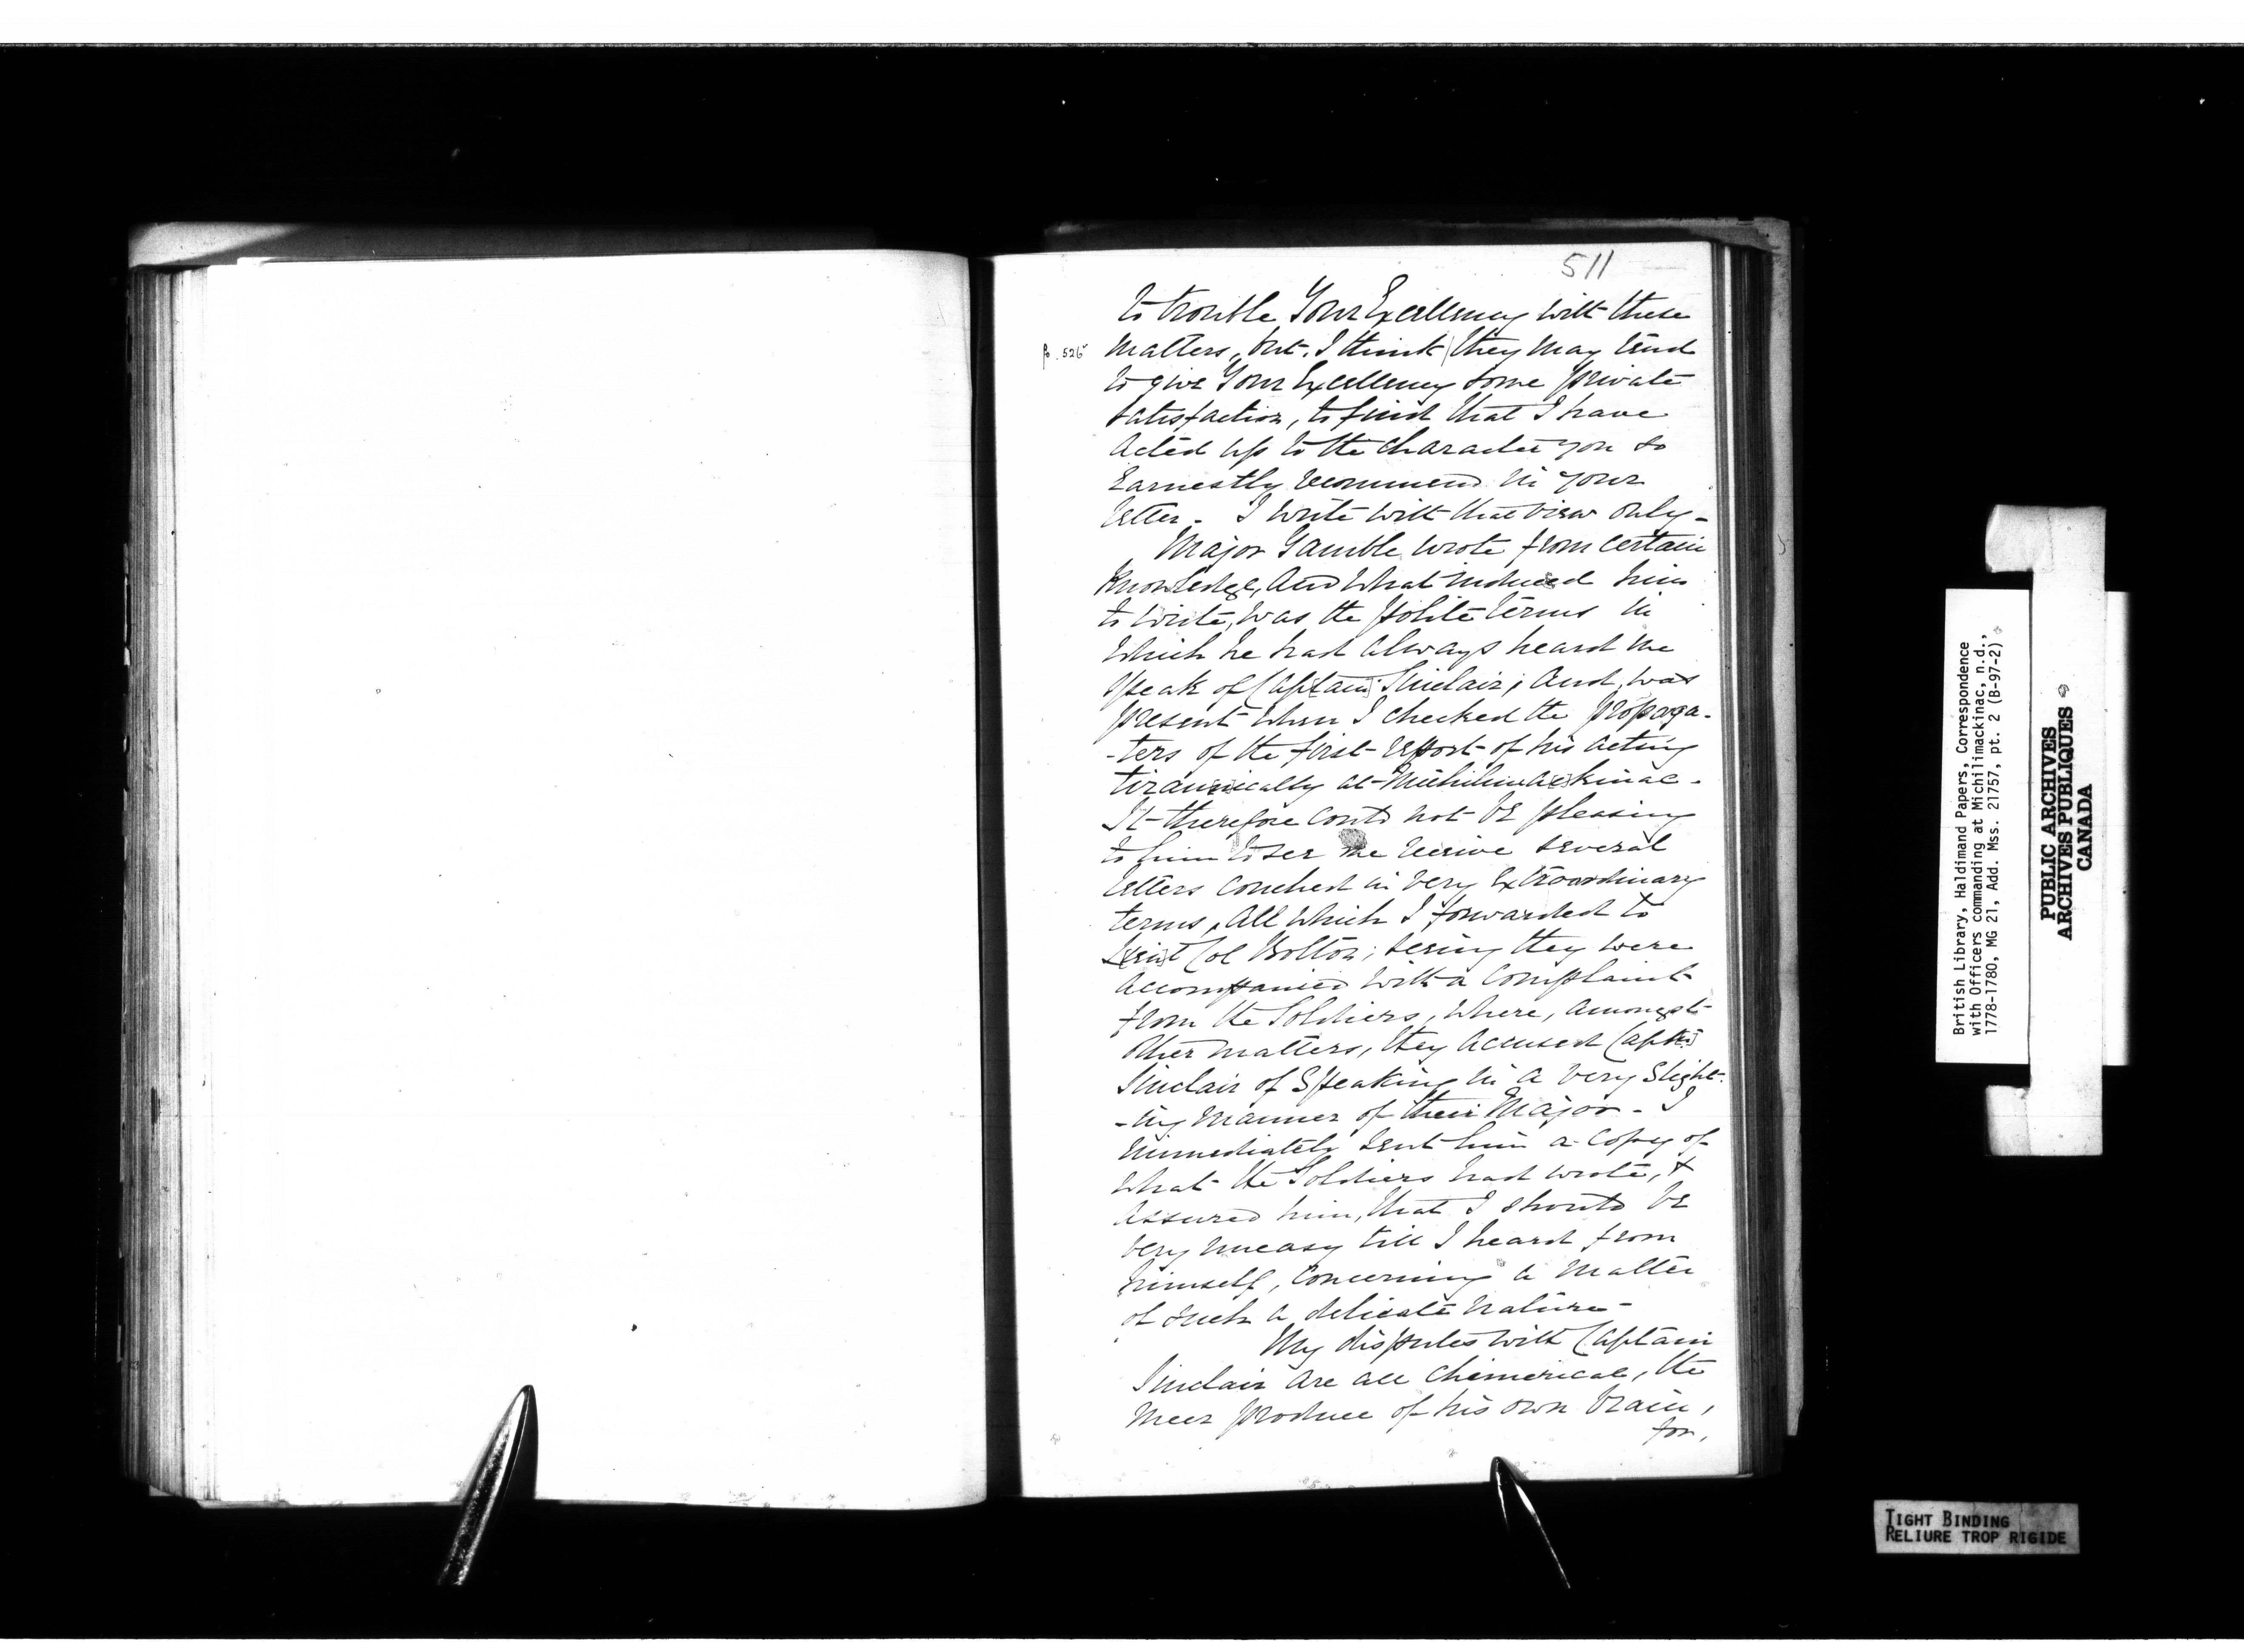 511
to trouble Your Excellency with these
fo. 526 matters, but I think they may tend
to give Your Excellency some private
satisfaction, to find that I have
acted up to the Character you so
Earnestly recommend in your
letter - I write with that view only -
Major Gamble wrote from certain
Knowledge, And what induced him
to write, was the polite terms in
which he had Always heard me
speak of Cap[tain] Sinclair; And, was
present when I checked the propaga-
-ters of the first report of his acting
tirannically at Michilimackinac -
It therefore could not be pleasing
to him to see me receive several
letters couched in very Extraordinary
terms, All which I forwarded to
L[ieu]t Col Bolton; seeing they were
accompanied with a Complaint
from the Soldiers, where, amongst
other matters, they Accused Capt[n]
Sinclair of Speaking in a very Slight-
-ing manner of their Major - I
immediately sent him a Copy of
what the Soldiers had wrote, &
Assured him, that I should be
very uneasy till I heard from
himself, Concerning a Matter
of such a delicate Nature -
My disputes with Captain
Sinclair Are all Chimerical, the
meer produce of his own brain,
for,
British Library, Haldimand Papers, Correspondence
with Officers commanding at Michilimackinac, n.d.,
1778-1780, MG 21, Add. Mss. 21757, pt. 2 (B-97-2)
PUBLIC ARCHIVES
ARCHIVES PUBLIQUES
CANADA
TIGHT BINDING
RELIURE TROP RIGIDE